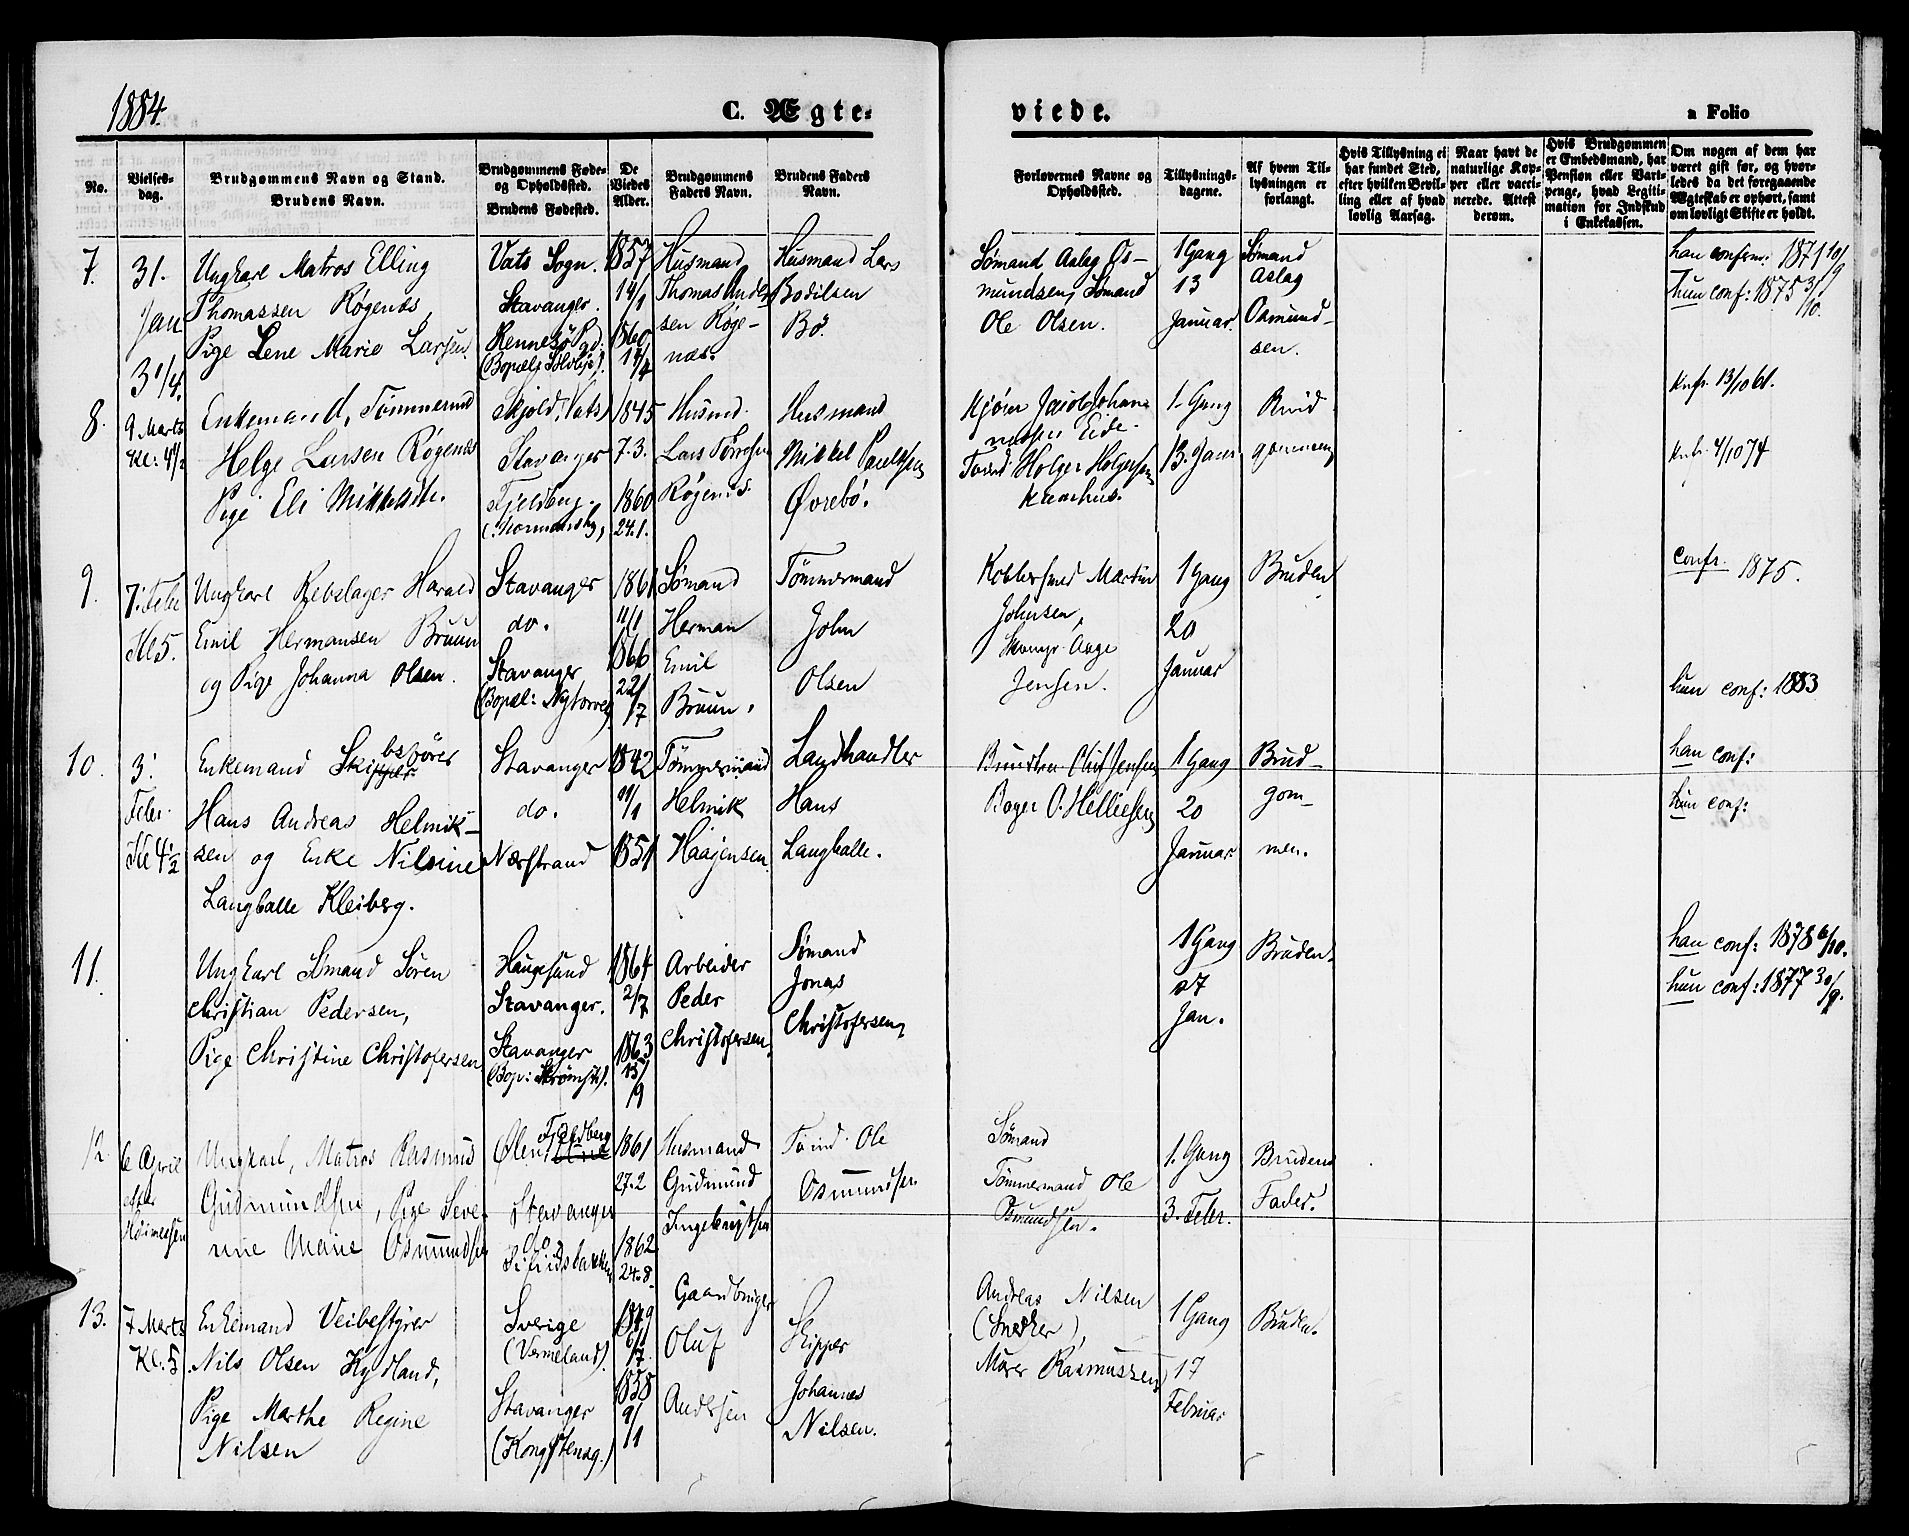 1884.
C. Ægte-
viede.
a Folio
No.
Vielses-
dag.
Brudgommens Navn og Stand.
Brudens Navn.
Brudgommens Føde-
og Opholdssted.
Brudens Fødested.
De
Viedes
Alder.
Brudgommens
Faders Navn.
Brudens Faders
Navn.
Forlovernes Navne og
Opholdssted.
Tillysnings-
dagene.
Af hvem Til-
lysningen er
forlangt.
Hvis Tillysning ei
har fundet Sted,
efter hvilken Bevil-
ling eller af hvad
lovlig Aarsag.
Naar havt de
naturlige Kop-
per eller vacci-
nerede. Attest
derom.
Hvis Brudgommen
er Embedsmand, har
Pension eller Vart-
penge, hvad Legiti-
mation for Indskud
i Enkekassen.
Om nogen af dem har
været gift før, og hvor-
ledes da det foregaaende
Ægteskab er ophørt, samt
om lovligt Skifte er holdt.
7.
31.
Jan
3 1/4.
Ungkarl Matros Elling
Thomassen Røgenæs,
Pige Lene Marie Larsen.
Vats Sogn.
Stavanger.
Rennesø Pgd.
1857
14/1
1860
14/4
Husmand
Thomas Ander
sen Røge-
næs.
Husmand Lars
Bodilsen
Bø.
Sømand Aslag Os-
mundsen, Sømand
Ole Olsen.
1 Gang
13
Januar
Sømand
Aslag
Osmund-
sen.
han confirm. 1871 10/9
hun conf: 1875 3/10.
8.
9 Marts
Kl: 4 1/2
Enkemand, Tømmermd
Helge Larsen Røgenæs
Pige Eli Mikkelsdtr.
Skjold, (Vats)
Stavanger
Fjeldberg.
1845
7.3.
1860
24.1.
Husmd.
Lars Tørresen
Røgenæs.
Husmand
Mikkel Paulsen
Øvrebø.
Jacob Johan-
nessen Eide.
Holger Holgersen
1. Gang
13. Janr
Brud
gommen
Knfr. 13/10 61.
Knfr. 4/10 74
9.
7: Febr
Kl 5.
Ungkarl Rebslager Harald
Emil Hermansen Bruun
og Pige Johanna Olsen.
Stavanger
do.
Stavanger
(Bopæl: Nytorvet)
1861
11/1
1866
22/7
Sømand
Herman
Emil
Bruun.
Tømmermand
John
Olsen
Kobbersmed Martin
Johnsen,
Aage
Jensen.
1 Gang
20
Januar
Bruden
confr. 1875.
hun conf: 1883
10.
3'
Febr.
Kl 4 1/2
Enkemand Skibsfører
Hans Andreas Helmik-
sen og Enke Nilsine
Langballe Kleiberg.
Stavanger
do.
Nærstrand
1842
11/1
1851
Tømmermand
Helmik
Haajensen
Landhandler
Hans
Langballe.
Oluf Jensen
Bager O. Helliesen
1 Gang
20
Januar
Brud-
gom-
men.
han conf:
hun conf:
11.
Ungkarl Sømand Søren
Christian Pedersen,
Pige Christine Christofersen
Haugesund
Stavanger.
Stavanger
(Bop: Strømst).
1864
2/7
1863
15/9
Arbeider
Peder
Christofersen.
Sømand
Jonas
Christofersen,
1 Gang
27
Jan.
Bruden.
han conf: 1878 6/10.
hun conf: 1877 30/9.
12.
6 April
efter
Høimessen
Ungkarl, Matros Rasmus
Gudmundsen, Pige Seve-
rine Marie Osmundsen
Ølen Fjeldberg
Stavanger
do
1861
27.2
1862
24.8.
Husmand
Gudmund
Ingebrigtsen
Tømd. Ole
Osmundsen
Sømand
Tømmermand Ole
Osmundsen.
1. Gang
3. Febr.
Brudens
Fader.
13.
7 Marts
Kl. 5
Enkemand Veibestyrer
Nils Olsen Kydland,
Pige Marthe Regine
Nilsen
Sverige
(Vermeland).
Stavanger
(Kongstensg.)
1849
6/7
1858
9/1
Gaardbruger
Oluf
Andersen
Skipper
Johannes
Nilsen.
Andreas Nilsen
(Snedker),
Murer Rasmussen
1 Gang
17
Februar
Bruden.